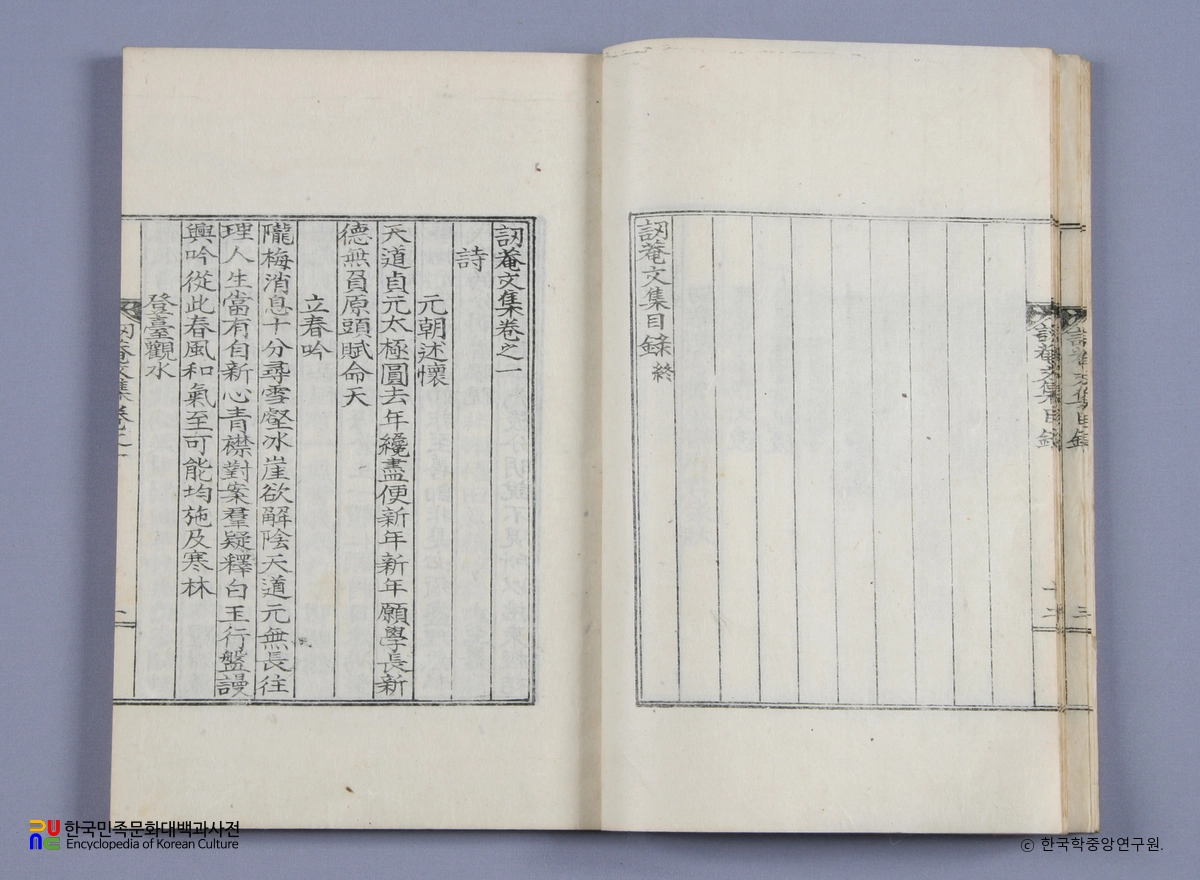 訒菴文集目錄 終
訒菴文集卷之一
詩
元朝述懷
天道貞元太極圓去年纔盡便新年新年願學長新
德無負原頭賦命天
立春吟
隴梅消息十分尋雪壑冰崖欲解陰天道元無長往
理人生當有自新心青襟對案羣疑釋白玉行盤謾
興吟從此春風和氣至可能均施及寒林
登臺觀水
訒菴文集卷之一
訒菴文集目錄
訒菴文集目錄
한국민족문화대백과사전
Encyclopedia of Korean Culture
ⓒ 한국학중앙연구원.